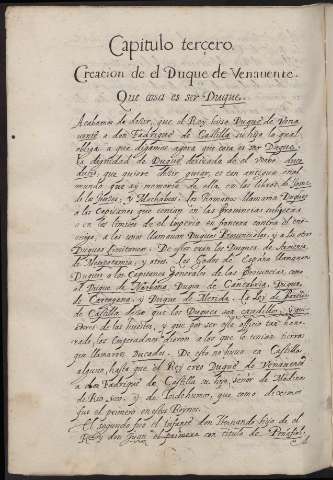 Capitulo terçero.
Creacion de el Duque de Venauente.
Que cosa es ser Duque.
Acabamos de dezir, que el Rey hizo Duque de Vena
uente a don Fadrique de Castilla su hijo lo qual
obliga a que digamos agora que cosa es ser Duque.
La dignidad de Duque deribada de el verbo duco
ducis, que quiere dezir guiar, es tan antigua en el
mundo que ay memoria de ella en los libros de
los Juezes, y Machabeos. Los Romanos llamaron Duques
a los Capitanes que tenian en las Prouincias subjetas
o en los limites de el Imperio en frontera contra el ene
migo, a los unos llamauan Duques Prouinciales, y a los otros
Duques Limitaneos. De estos eran los Duques de
de Mesopotamia, y otros. Los Godos de España llamaron
Duques a los Capitanes Generales de las Prouincias, como
al Duque de Narbona, Duque de Cantabria, Duque
de Cartagena, y Duque de Merida. La Ley de Partida
de Castilla dize que los Duques son caudillos, y aua
dores de las huestes, y que por ser este officio tan hon
rado, los Emperadores dieron a los que lo tenian tierras
que llamaron Ducados. De esto no huuo en Castilla
alguno, hasta que el Rey creo Duque de Venauente
a don Fadrique de Castilla su hijo, señor de Medina
de Rio seco, y de Tordehumos, que como dezimos
fue el primero en estos Reynos.
El segundo fue el Infante don Hernando hijo de el
Rey don Juan el primero con titulo de Peñafiel